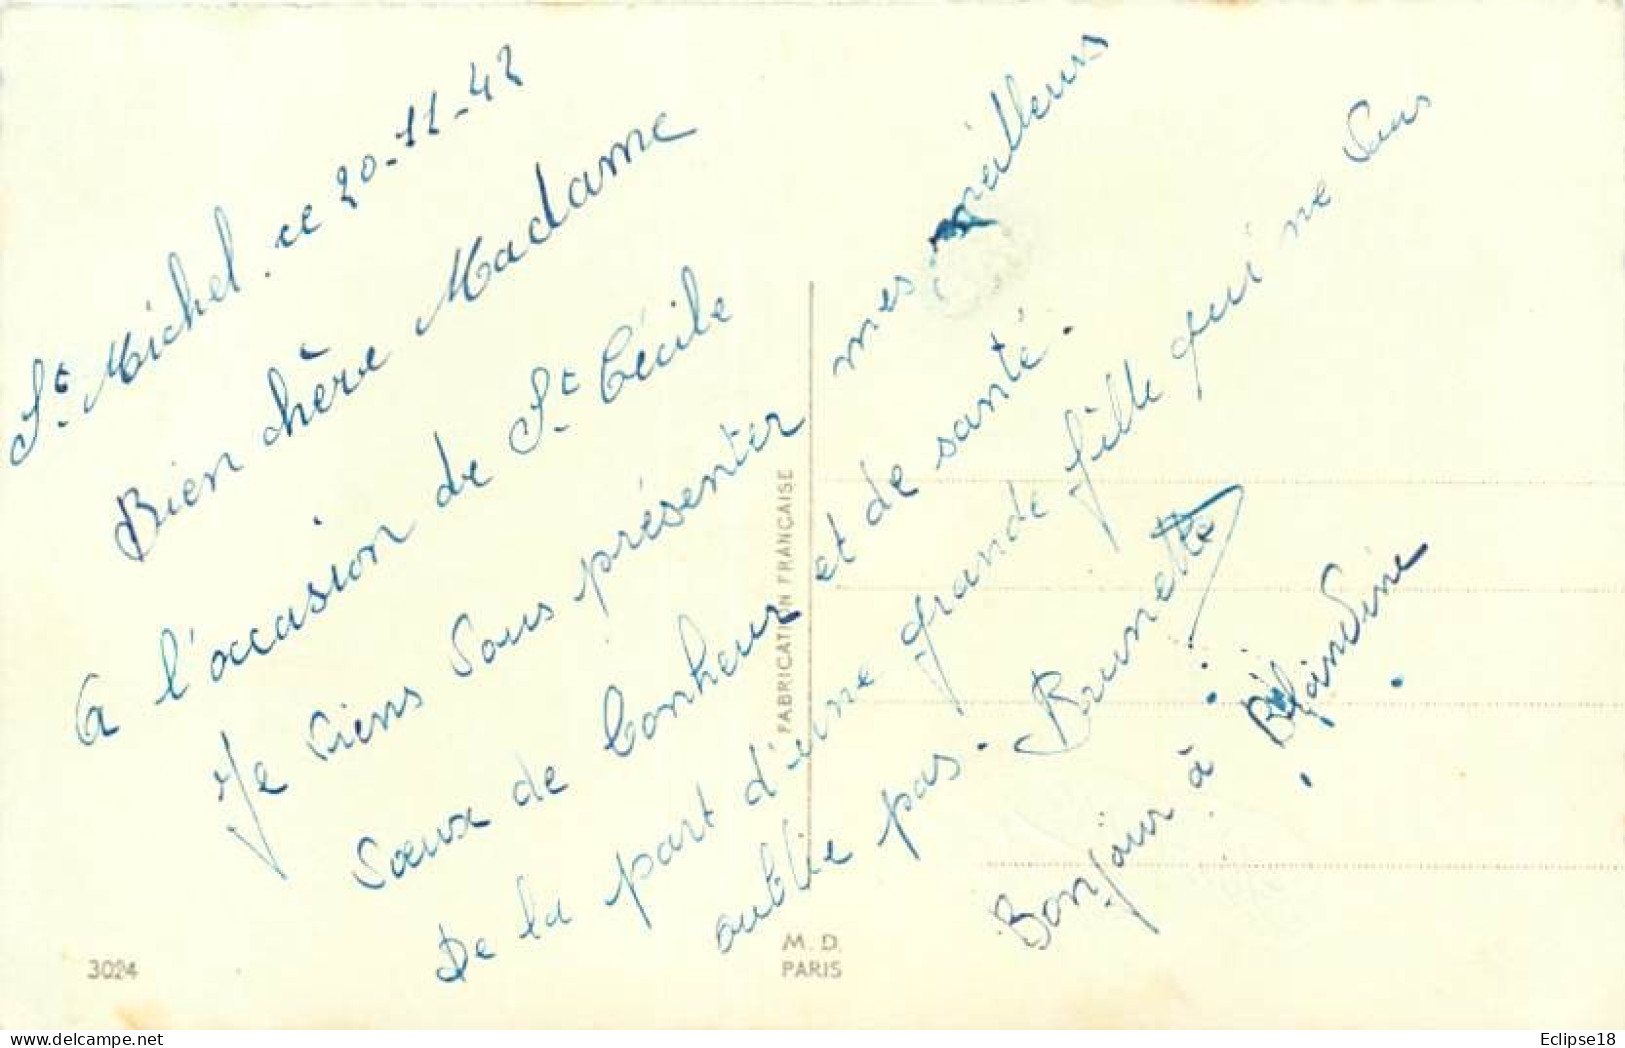 St. Michel. ce 20-11-42
Bien chère Madame
A l'occasion de St. Cécile
Je Viens Vous présenter mes meilleurs
Vœux de bonheur et de santé.
De la part d'une grande fille qui ne Vous
oublie pas. Brunette
Bonjour à
FABRICATION FRANÇAISE
M. D.
PARIS
3024
Eclipse18